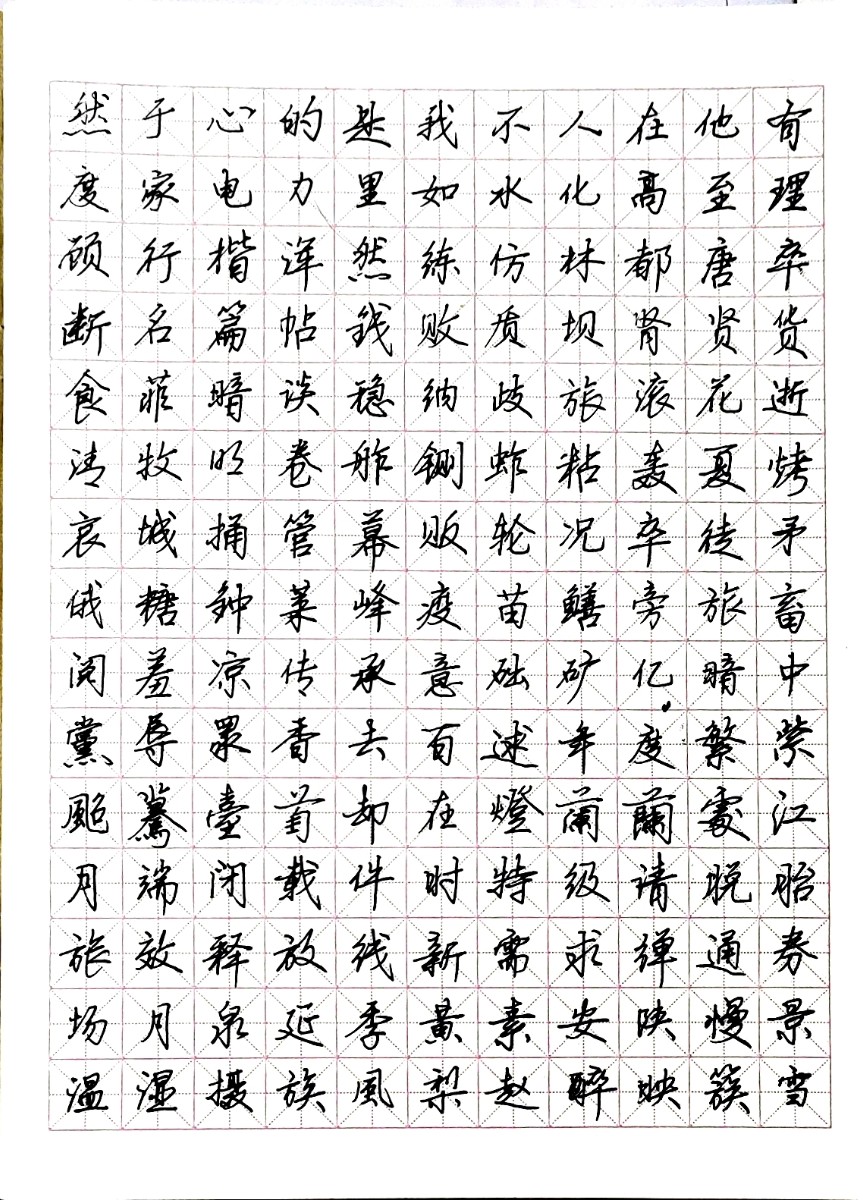 然于心的是我不人在他有
度家电力里如水化高至理
顾行楷浑然练仿林都唐卒
断名篇帖钱败质坝肾贤货
食菲暗谈稳纳歧旅滚花逝
清牧明卷舴铡蚱粘轰夏烤
哀城捅管幕贩轮况卒徒矛
俄糖钟菜峰疫苗鳝旁旅畜
阅羞凉传承意础矿亿暗中
黨辱眾香去百述年度繁紫
颱驚臺萄却在燈蘭蘭處江
月端闭载件时特级请脱胎
旅效释放线新需求弹通券
场月泉延季黄素安陕慢景
温湿摄族風梨赵醉映簇雪